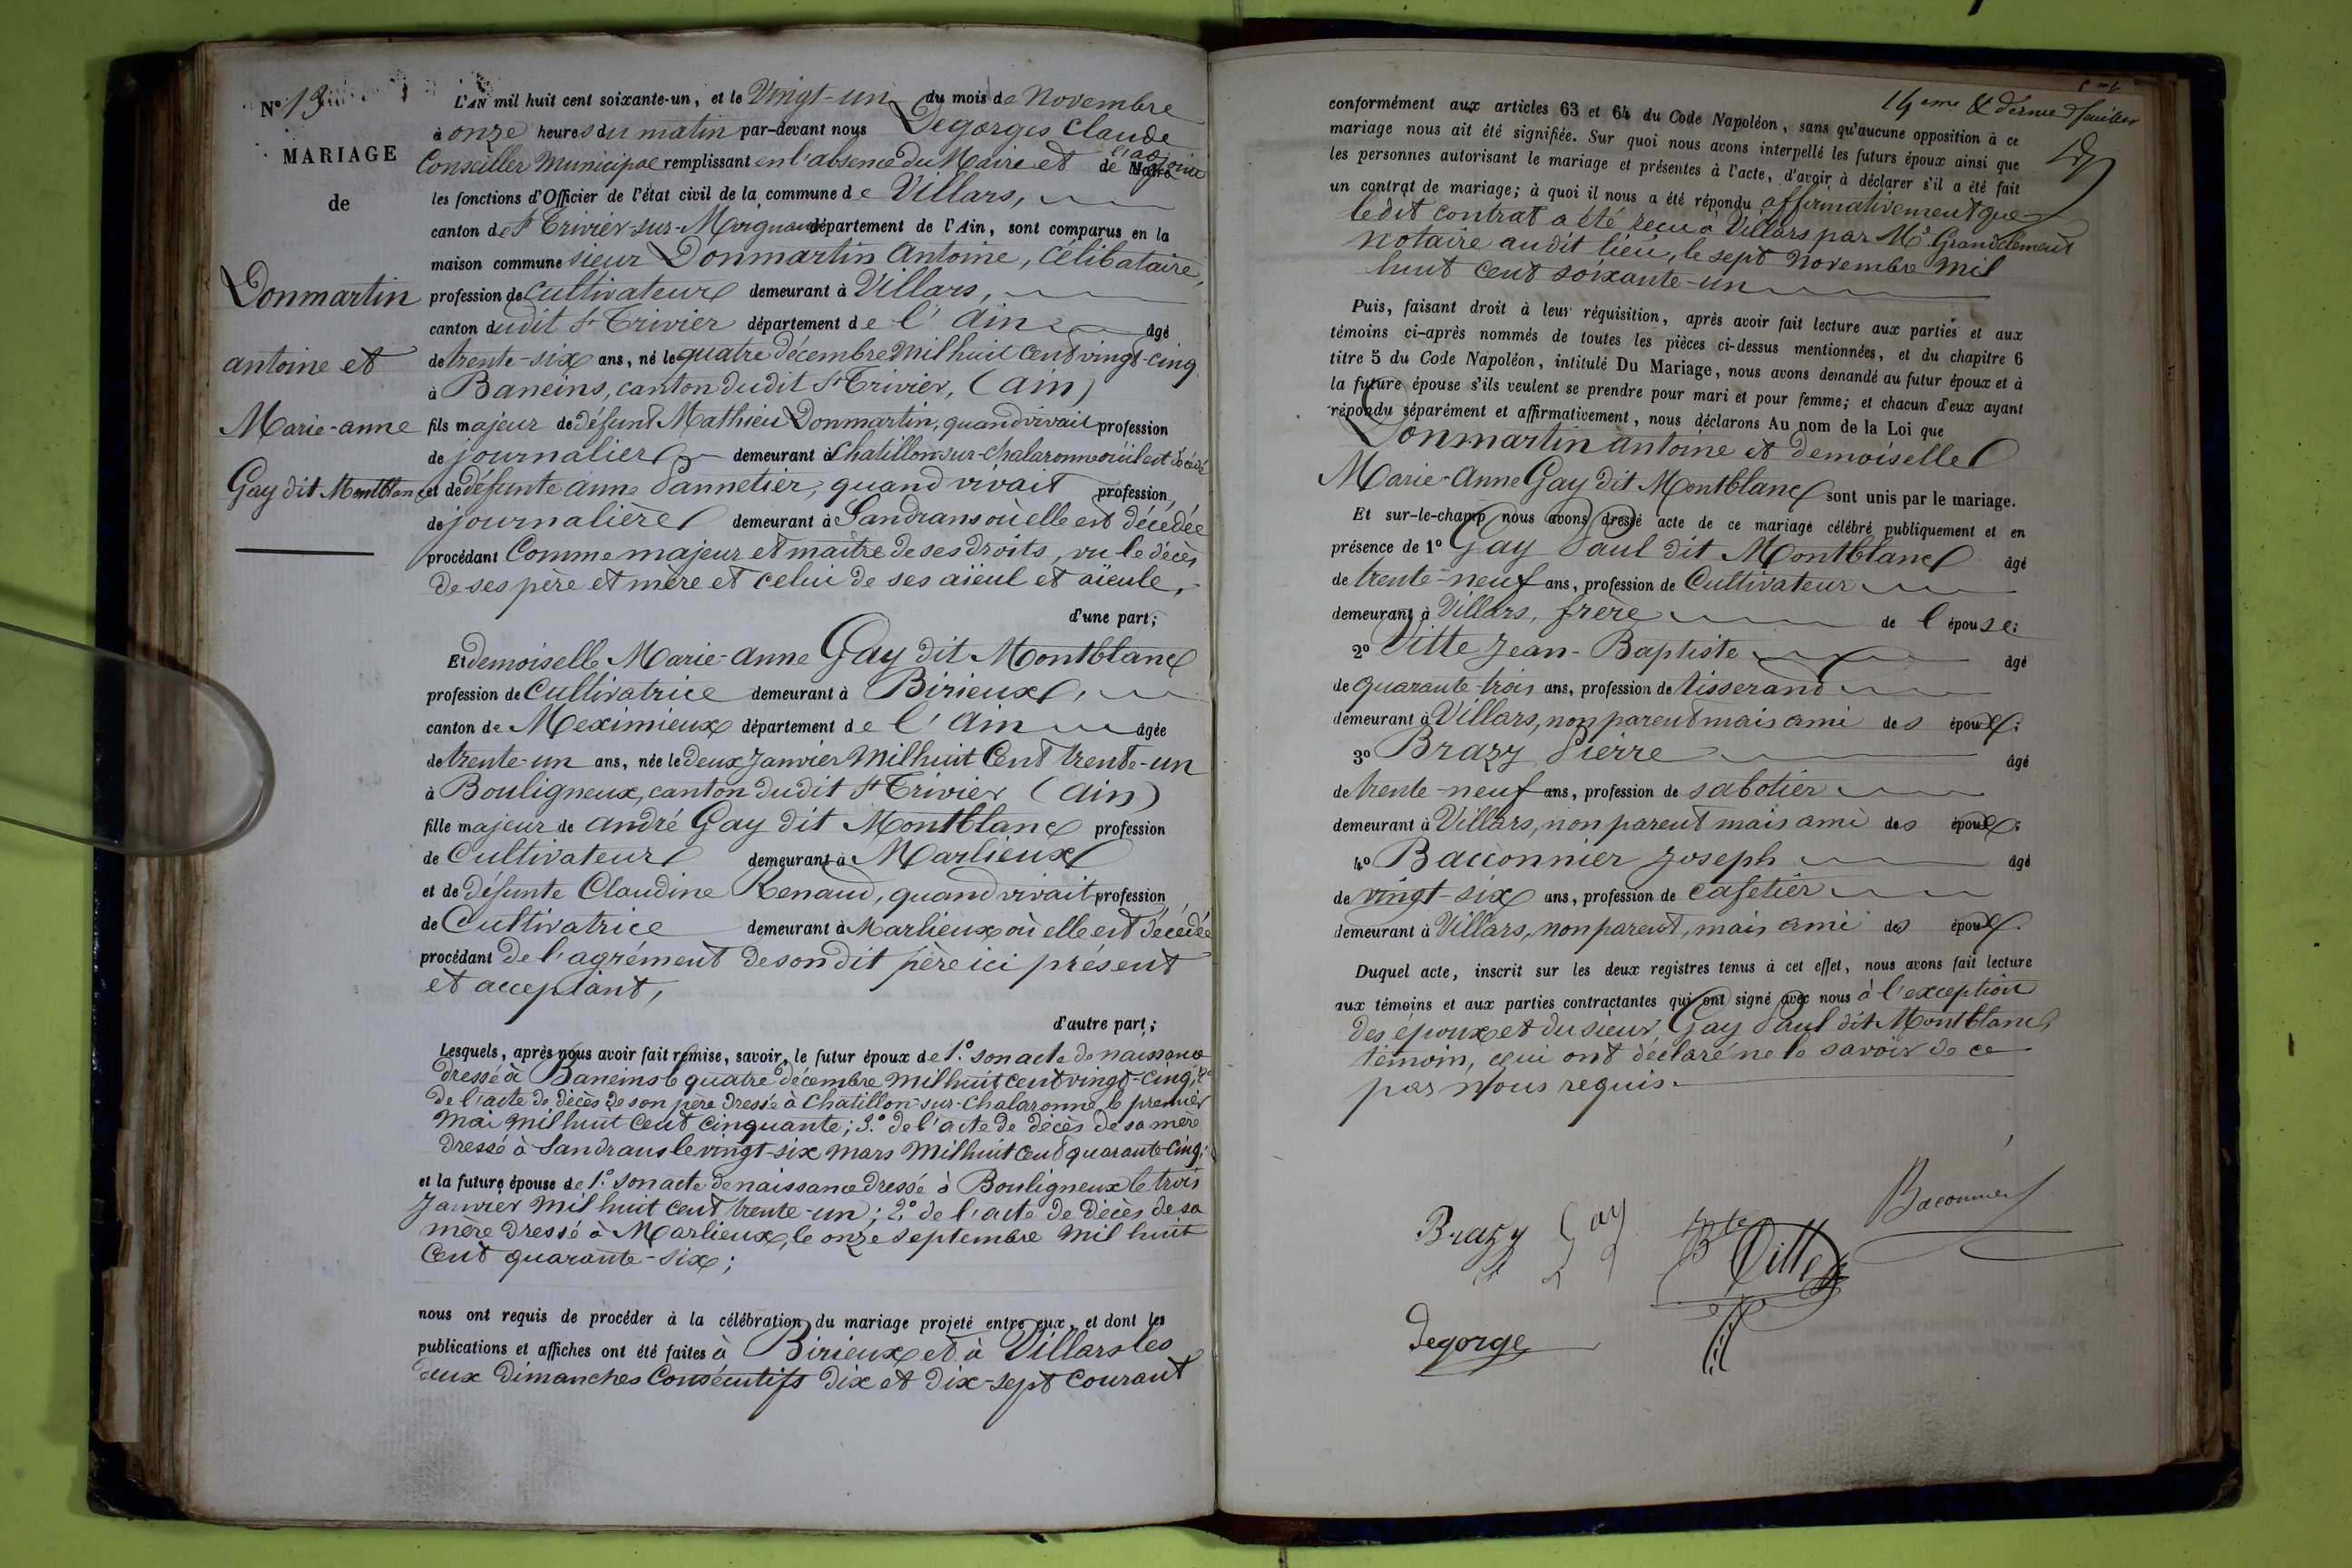 N° 13
MARIAGE
de
Donmartin
antoine et
Marie-anne
Gay dit Montblanc
L'AN mil huit cent soixante-un, et le Vingt-un du mois de Novembre
à onze heures du matin par-devant nous Degorges Claude
Conseiller Municipal remplissant en l'absence du Maire et de l'adjoint
les fonctions d'Officier de l'état civil de la commune de Villars,
canton de St Trivier-sur-Moignans département de l'Ain, sont comparus en la
maison commune sieur Donmartin Antoine, Célibataire,
profession de Cultivateur demeurant à Villars,
canton dudit St Trivier département de l'Ain âgé
de trente-six ans, né le quatre décembre Mil huit cent vingt-cinq
à Baneins, canton dudit St Trivier, (Ain)
fils majeur de défunt Mathieu Donmartin, quand vivait profession
de journalier demeurant à Chatillon-sur-Chalaronne où il est décédé
et de défunte anne Pannetier, quand vivait profession
de journalière demeurant à Sandrans où elle est décédée
procédant Comme majeur et maître de ses droits, vu le décès
de ses père et mère et celui de ses aïeul et aïeule,
d'une part;
Et demoiselle Marie-anne Gay dit Montblanc
profession de Cultivatrice demeurant à Birieux,
canton de Meximieux département de l'Ain âgée
de trente-un ans, née le deux Janvier Mil huit Cent trente-un
à Bouligneux, canton dudit St Trivier (Ain)
fille majeur de andré Gay dit Montblanc profession
de Cultivateur demeurant à Marlieux
et de défunte Claudine Renaud, quand vivait profession
de Cultivatrice demeurant à Marlieux où elle est décédée
procédant de l'agrément de son dit père ici présent
et acceptant,
d'autre part;
Lesquels, après nous avoir fait remise, savoir, le futur époux de 1.° son acte de naissance
dressé à Baneins le quatre décembre mil huit cent vingt-cinq; 2°
de l'acte de décès de son père dressé à Chatillon-sur-Chalaronne, le premier
Mai mil huit cent cinquante; 3.° de l'acte de décès de sa mère
dressé à Sandrans le vingt-six mars Mil huit cent quarante-cinq;
et la future épouse de 1.° son acte de naissance dressé à Bouligneux le trois
Janvier mil huit cent trente-un; 2.° de l'acte de décès de sa
mère dressé à Marlieux, le onze septembre mil huit
Cent quarante-six;
nous ont requis de procéder à la célébration du mariage projeté entre eux, et dont les
publications et affiches ont été faites à Birieux et à Villars les
deux dimanches Consécutifs dix et dix-sept Courant
14eme & dernier feuillet
conformément aux articles 63 et 64 du Code Napoléon, sans qu'aucune opposition à ce
mariage nous ait été signifiée. Sur quoi nous avons interpellé les futurs époux ainsi que
les personnes autorisant le mariage et présentes à l'acte, d'avoir à déclarer s'il a été fait
un contrat de mariage; à quoi il nous a été répondu affirmativement que
ledit contrat a été reçu à Villars par Me Grandclément
notaire audit lieu, le sept Novembre Mil
huit cent soixante-un
Puis, faisant droit à leur réquisition, après avoir fait lecture aux parties et aux
témoins ci-après nommés de toutes les pièces ci-dessus mentionnées, et du chapitre 6
titre 5 du Code Napoléon, intitulé Du Mariage, nous avons demandé au futur époux et à
la future épouse s'ils veulent se prendre pour mari et pour femme; et chacun d'eux ayant
répondu séparément et affirmativement, nous déclarons Au nom de la Loi que
Donmartin antoine et demoiselle
Marie-Anne Gay dit Montblanc sont unis par le mariage.
Et sur-le-champ nous avons dressé acte de ce mariage célébré publiquement et en
présence de 1° Gay Paul dit Montblanc âgé
de trente-neuf ans, profession de Cultivateur
demeurant à Villars, frère de l'épouse;
2° Vitte Jean-Baptiste âgé
de quarante trois ans, profession de tisserand
demeurant à Villars, non parent mais ami des époux;
3° Brazy Pierre âgé
de trente-neuf ans, profession de sabotier
demeurant à Villars, non parent mais ami des époux;
4° Bacconnier Joseph âgé
de vingt-six ans, profession de cafetier
demeurant à Villars, non parent, mais ami des époux.
Duquel acte, inscrit sur les deux registres tenus à cet effet, nous avons fait lecture
aux témoins et aux parties contractantes qui ont signé avec nous à l'exception
des époux et du sieur Gay Paul dit Montblanc,
témoin, qui ont déclaré ne le savoir de ce
par Nous requis.
Brazy Gay Bte Vitte Baconnier
Degorge